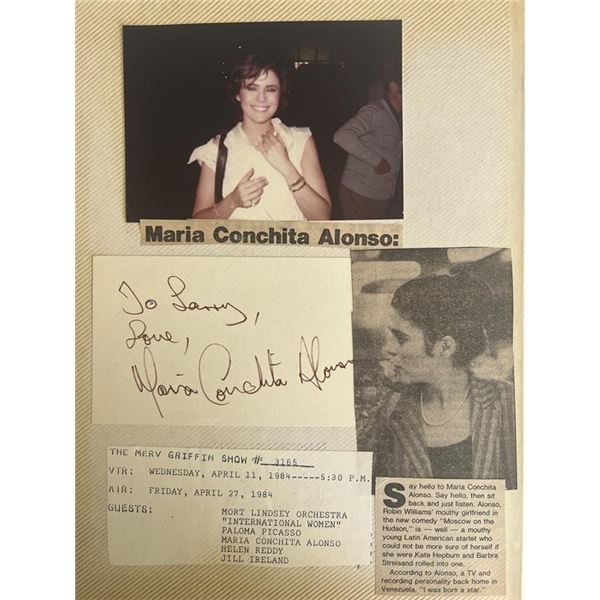 Maria Conchita Alonso:
To Larry,
Love,
Maria Conchita Alonso
THE MERV GRIFFIN SHOW # 3165
VTR: WEDNESDAY, APRIL 11, 1984-----5:30 P.M.
AIR: FRIDAY, APRIL 27, 1984
GUESTS: MORT LINDSEY ORCHESTRA
"INTERNATIONAL WOMEN"
PALOMA PICASSO
MARIA CONCHITA ALONSO
HELEN REDDY
JILL IRELAND
Say hello to Maria Conchita
Alonso. Say hello, then sit
back and just listen. Alonso,
Robin Williams' mouthy girlfriend in
the new comedy "Moscow on the
Hudson," is — well — a mouthy
young Latin American starlet who
could not be more sure of herself if
she were Kate Hepburn and Barbra
Streisand rolled into one.
According to Alonso, a TV and
recording personality back home in
Venezuela, "I was born a star."